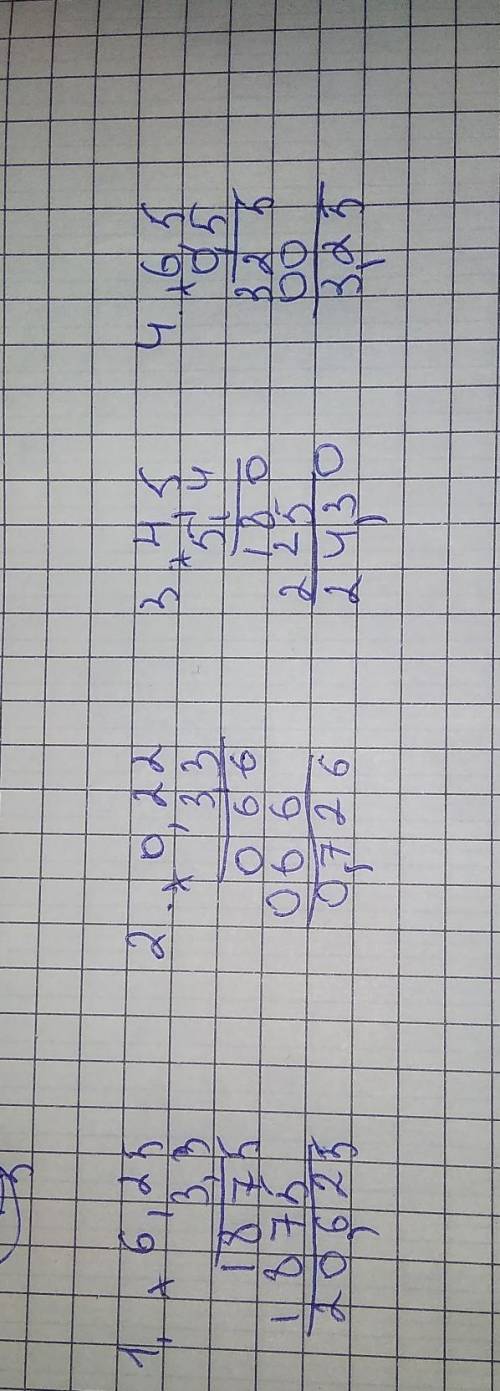 1, × 6,25
3,3
1875
1875
20,625
2. × 0,22
3,3
066
066
0,726
3 × 4 5
5,4
180
225
243,0
4. × 6,5
0,5
325
00
3,25